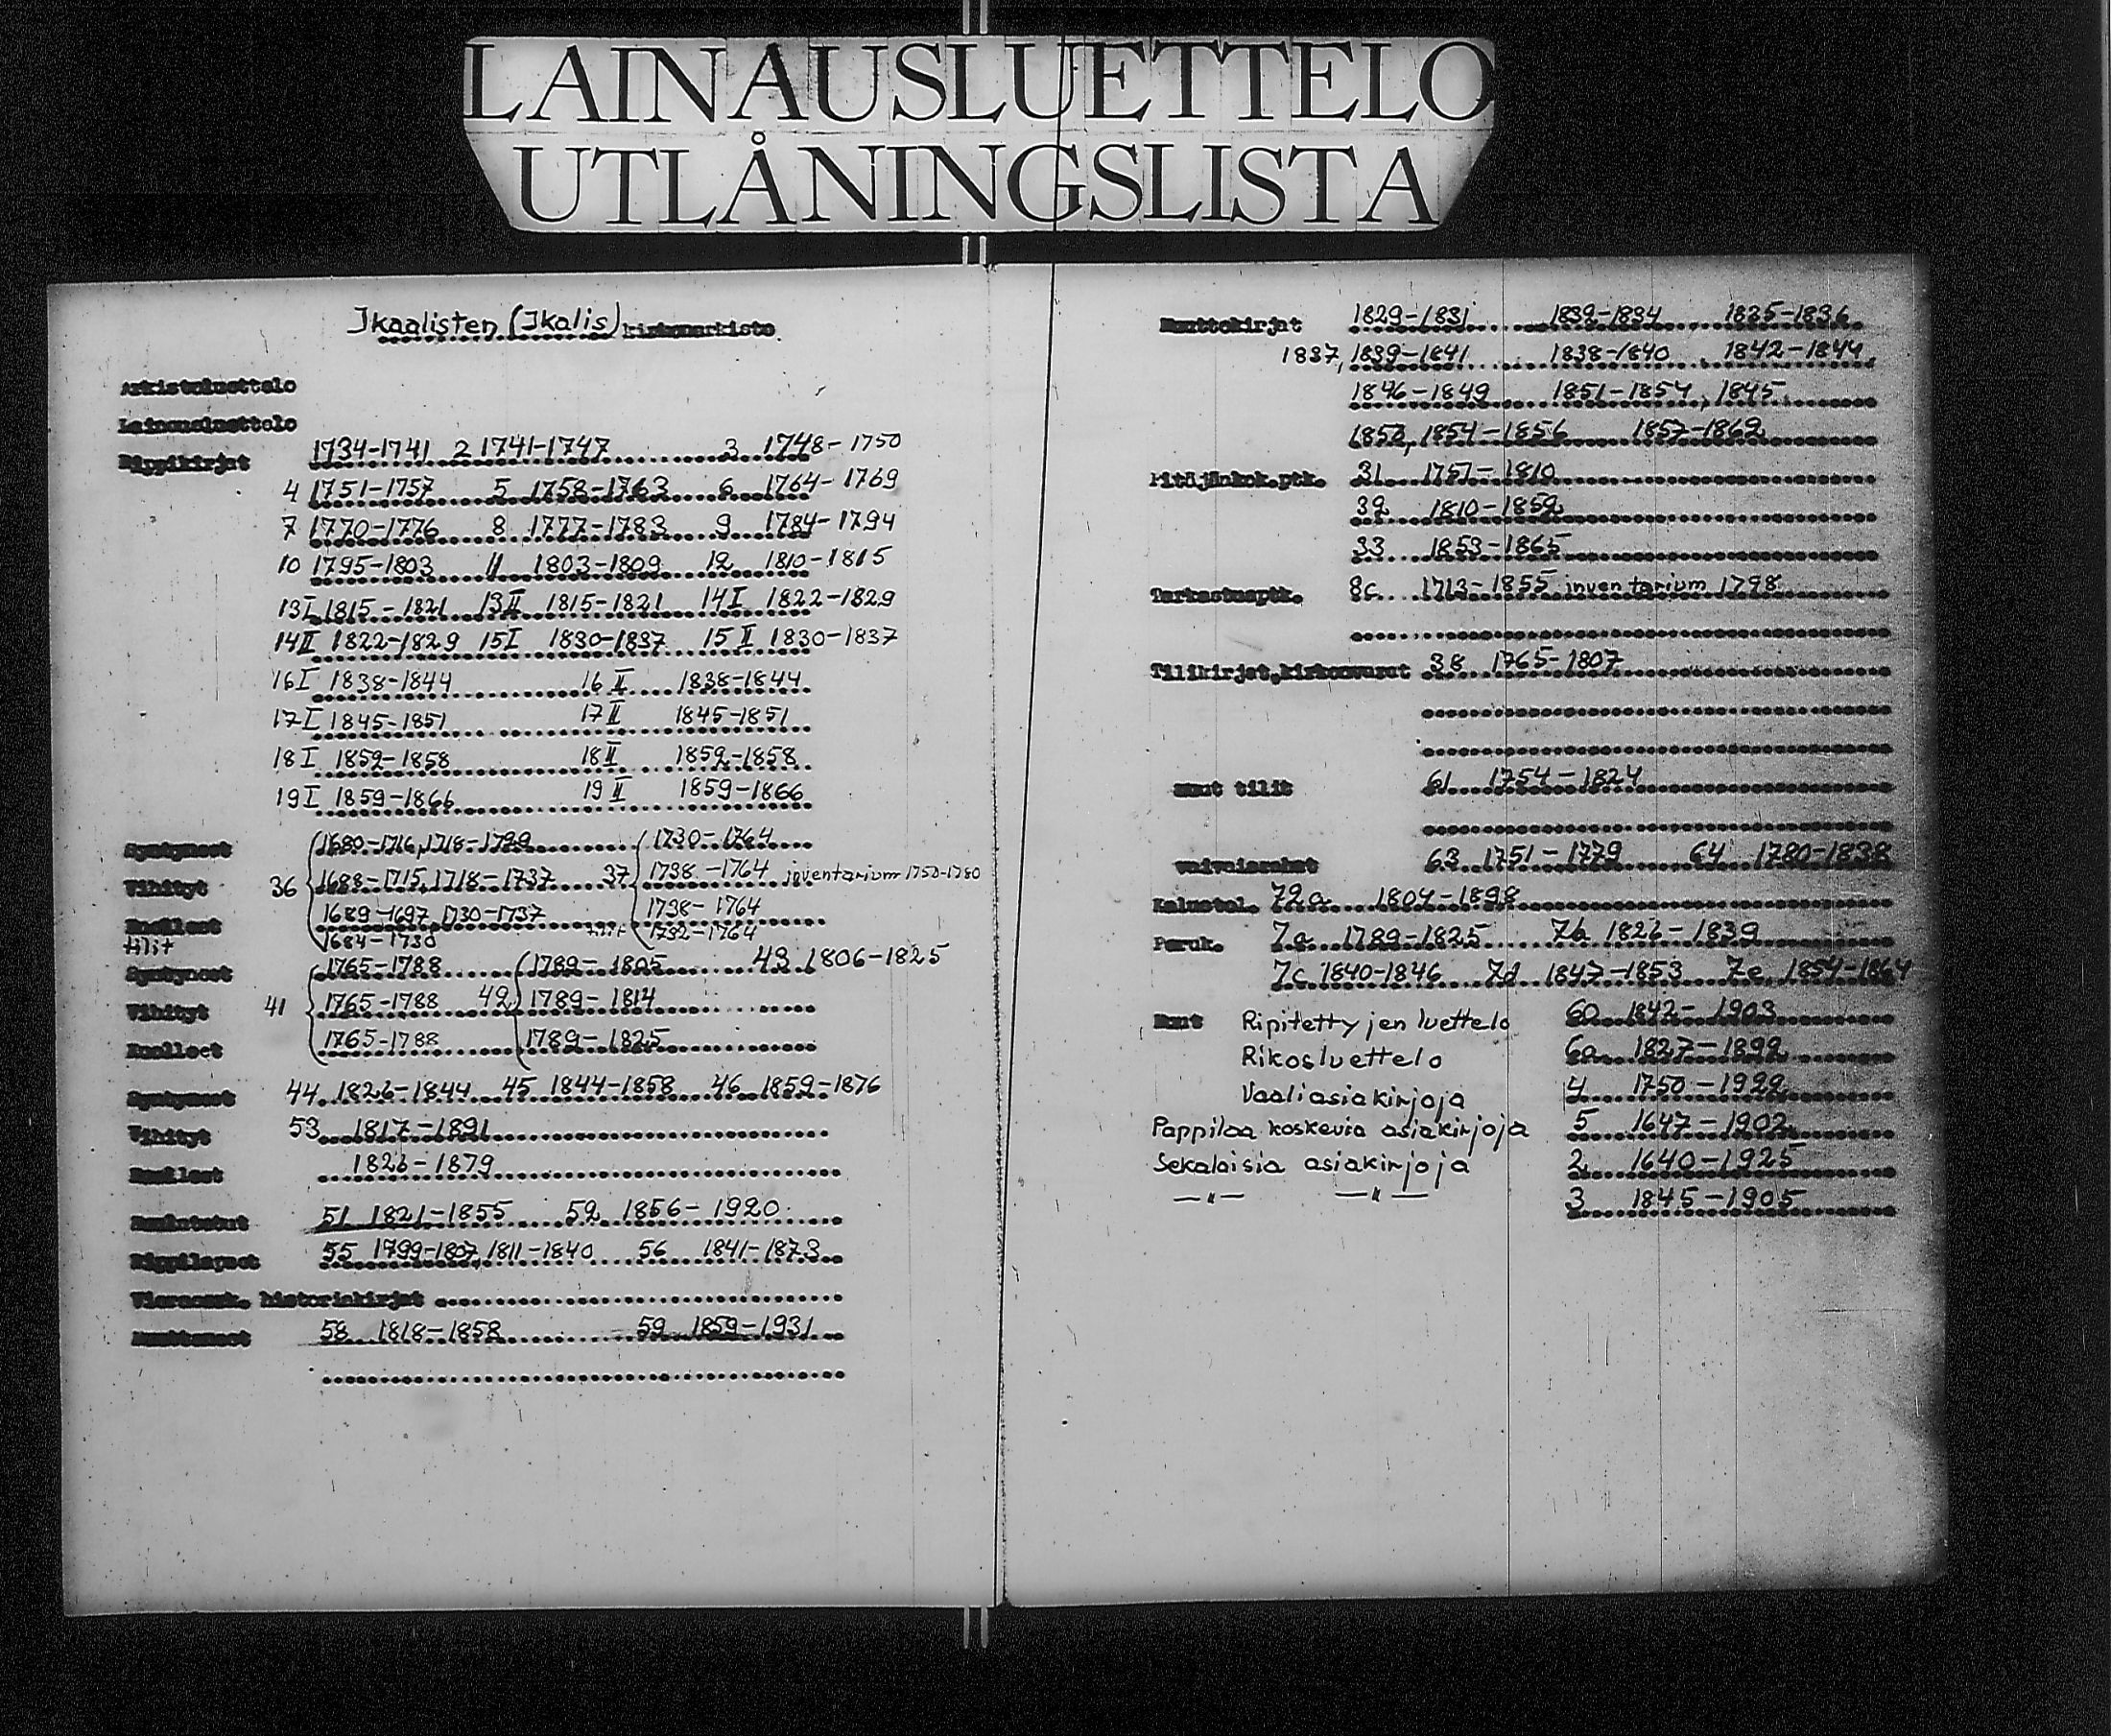 LAINAUSLUETTELO
UTLÅNINGSLISTA
Ikaalisten (Ikalis) kirkonarkisto
Arkistoluettelo
Lainausluettelo
Rippikirjat 1734-1741 2 1741-1747 3 1748-1750
4 1751-1757 5 1758-1763 6 1764-1769
7 1770-1776 8 1777-1783 9 1784-1794
10 1795-1803 11 1803-1809 12 1810-1815
13 I 1815-1821 13 II 1815-1821 14 I 1822-1829
14 II 1822-1829 15 I 1830-1837 15 II 1830-1837
16 I 1838-1844 16 II 1838-1844
17 I 1845-1851 17 II 1845-1851
18 I 1852-1858 18 II 1852-1858
19 I 1859-1866 19 II 1859-1866
Syntyneet 1680-1716, 1718-1729 1730-1764
Vihityt 36 1688-1715, 1718-1737 37 1738-1764 inventarium 1750-1780
Kuolleet 1689-1697, 1730-1737 1738-1764
tilit 1684-1730 tilit 1732-1764
Syntyneet 1765-1788 1789-1805 43 1806-1825
Vihityt 41 1765-1788 42 1789-1814
Kuolleet 1765-1788 1789-1825
Syntyneet 44 1826-1844 45 1844-1858 46 1859-1876
Vihityt 53 1817-1891
Kuolleet 1826-1879
Kuulutetut 51 1821-1855 52 1856-1920
Rippilapset 55 1799-1807, 1811-1840 56 1841-1873
Vierassk. historiakirjat
Muuttaneet 58 1818-1858 59 1859-1931
Muuttokirjat 1829-1831 1832-1834 1835-1836
1837, 1839-1841 1838-1840 1842-1844,
1846-1849 1851-1854, 1845
1853, 1854-1856 1857-1862
Pitäjänkok.ptk. 31 1757-1810
32 1810-1852
33 1853-1865
Tarkastusptk. 8c 1713-1855 inventarium 1798
Tilikirjat, kirkonvarat 38 1765-1807
Muut tilit 61 1754-1824
vaivaisrahat 63 1751-1779 64 1780-1838
Kalustol. 72a 1804-1898
Peruk. 7a 1789-1825 7b 1826-1839
7c 1840-1846 7d 1847-1853 7e 1854-1864
Muut Ripitettyjen luettelo 60 1842-1903
Rikosluettelo 6a 1827-1899
Vaaliasiakirjoja 4 1750-1922
Pappilaa koskevia asiakirjoja 5 1647-1902
Sekalaisia asiakirjoja 2 1640-1925
—"— —"— 3 1845-1905